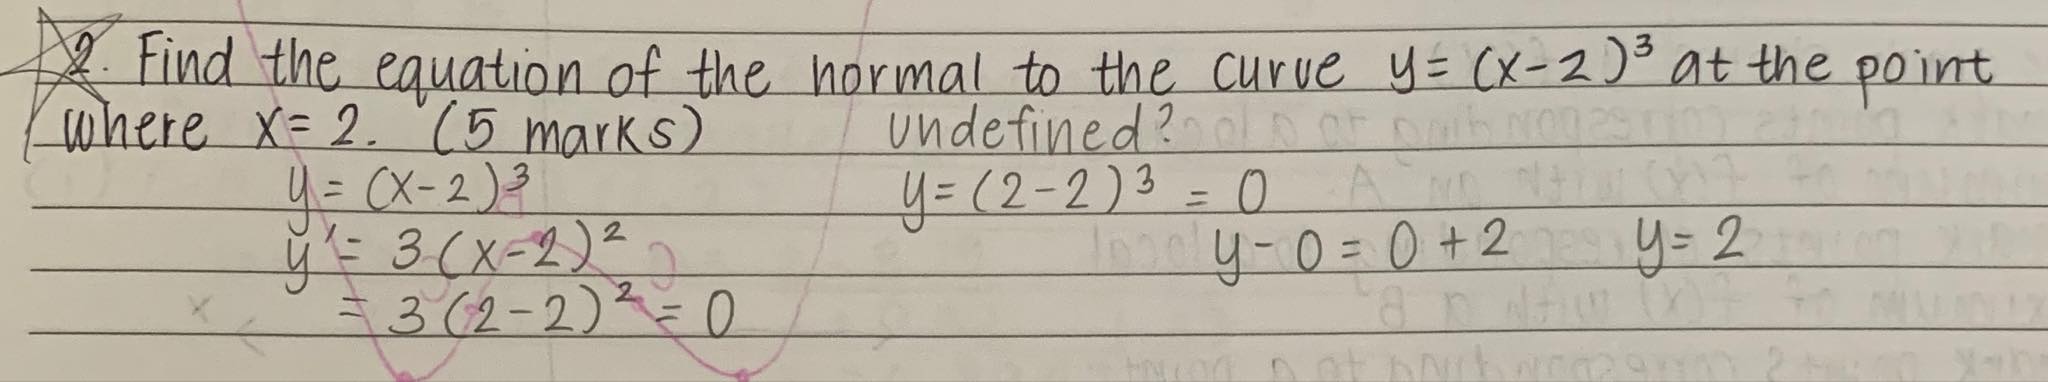 2. Find the equation of the normal to the curve y = (x-2)³ at the point
where x = 2. (5 marks) undefined?
y = (x-2)³ y = (2-2)³ = 0
y' = 3(x-2)² y-0 = 0+2 y = 2
= 3(2-2)² = 0